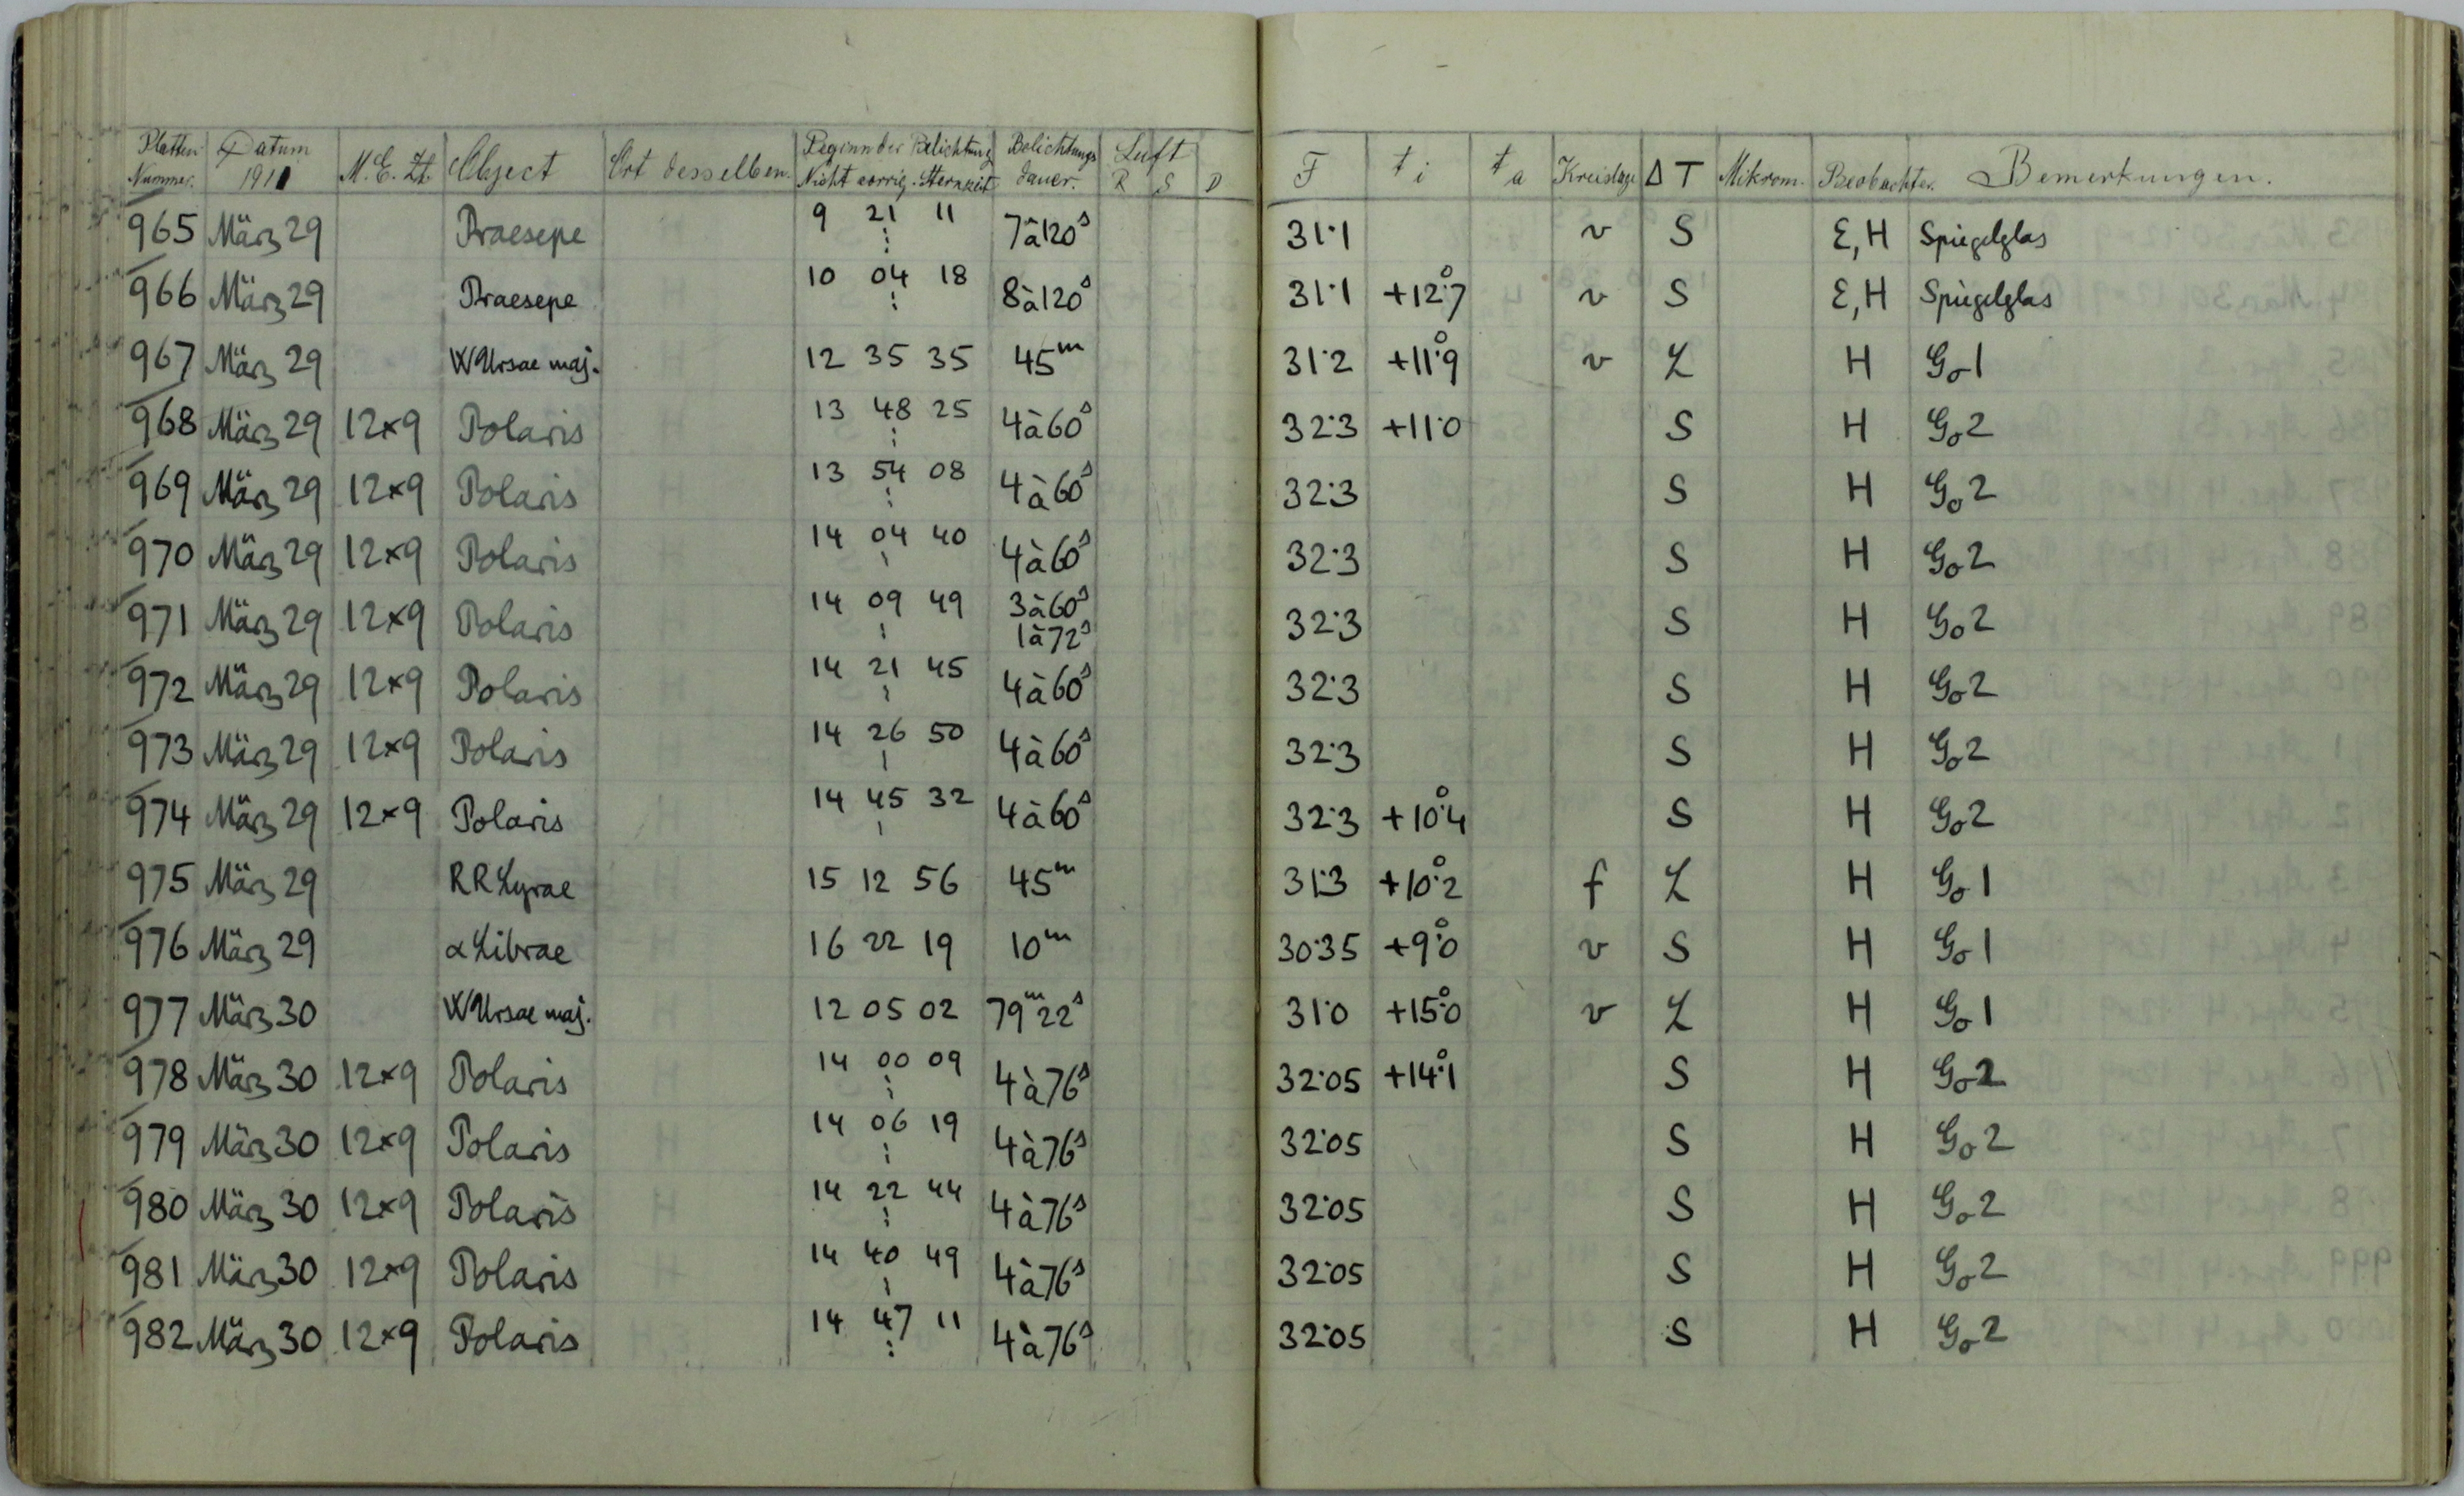 Platten Nummer. Datum 1911 M.E.Zt. Object Ort desselben. Beginn der Belichtung Nicht corrig. Sternzeit Belichtungs dauer. Luft R S D F t i t a Kreislage Δ T Mikrom. Beobachter. Bemerkungen.
965 März 29 Praesepe 9 21 11 7 à 120ˢ 31.1 v S E, H Spiegelglas
966 März 29 Praesepe 10 04 18 8 à 120ˢ 31.1 +12°.7 v S E, H Spiegelglas
967 März 29 W Ursae maj. 12 35 35 45ᵐ 31.2 +11°.9 v L H Go 1
968 März 29 12×9 Polaris 13 48 25 4 à 60ˢ 32.3 +11.0 S H Go 2
969 März 29 12×9 Polaris 13 54 08 4 à 60ˢ 32.3 S H Go 2
970 März 29 12×9 Polaris 14 04 40 4 à 60ˢ 32.3 S H Go 2
971 März 29 12×9 Polaris 14 09 49 3 à 60ˢ 1 à 72ˢ 32.3 S H Go 2
972 März 29 12×9 Polaris 14 21 45 4 à 60ˢ 32.3 S H Go 2
973 März 29 12×9 Polaris 14 26 50 4 à 60ˢ 32.3 S H Go 2
974 März 29 12×9 Polaris 14 45 32 4 à 60ˢ 32.3 +10°.4 S H Go 2
975 März 29 RR Lyrae 15 12 56 45ᵐ 31.3 +10°.2 f L H Go 1
976 März 29 α Librae 16 22 19 10ᵐ 30.35 +9°.0 v S H Go 1
977 März 30 W Ursae maj. 12 05 02 79ᵐ22ˢ 31.0 +15°.0 v L H Go 1
978 März 30 12×9 Polaris 14 00 09 4 à 76ˢ 32.05 +14°.1 S H Go 2
979 März 30 12×9 Polaris 14 06 19 4 à 76ˢ 32.05 S H Go 2
980 März 30 12×9 Polaris 14 22 44 4 à 76ˢ 32.05 S H Go 2
981 März 30 12×9 Polaris 14 40 49 4 à 76ˢ 32.05 S H Go 2
982 März 30 12×9 Polaris 14 47 11 4 à 76ˢ 32.05 S H Go 2